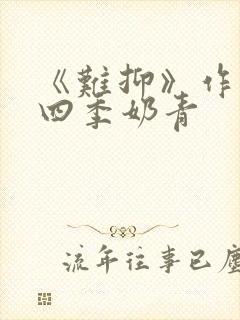 《難抑》作
四季奶青
流年往事已塵